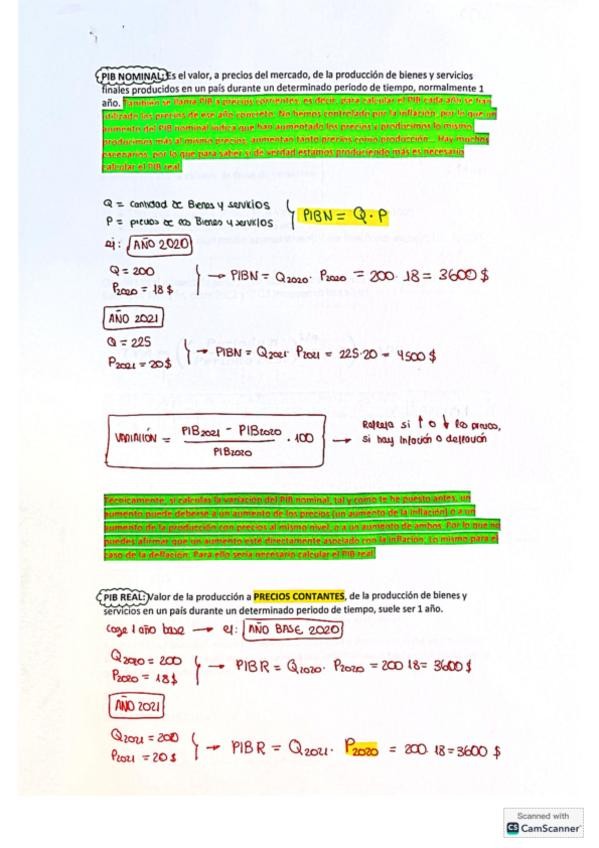 PIB NOMINAL: Es el valor, a precios del mercado, de la producción de bienes y servicios
finales producidos en un país durante un determinado periodo de tiempo, normalmente 1
año. También se llama PIB a precios corrientes, es decir, para calcular el PIB cada año se han
utilizado los precios de ese año concreto. No hemos controlado por la inflación, por lo que un
aumento del PIB nominal indica que han aumentado los precios y producimos lo mismo,
producimos más al mismo precio, aumentan tanto precios como producción... Hay muchos
escenarios, por lo que para saber si de verdad estamos produciendo más es necesario
calcular el PIB real.
Q = cantidad de Bienes y servicios
P = precios de los Bienes y servicios
PIBN = Q · P
ej: AÑO 2020
Q = 200
P2020 = 18 $
→ PIBN = Q2020 · P2020 = 200 · 18 = 3600 $
AÑO 2021
Q = 225
P2021 = 20 $
→ PIBN = Q2021 · P2021 = 225·20 = 4500 $
VARIACIÓN = PIB2021 - PIB2020 / PIB2020 · 100
→ Refleja si ↑ o ↓ los precios,
si hay inflación o deflación
Técnicamente, si calculas la variación del PIB nominal, tal y como te he puesto antes, un
aumento puede deberse a un aumento de los precios (un aumento de la inflación) o a un
aumento de la producción con precios al mismo nivel, o a un aumento de ambos. Por lo que no
puedes afirmar que un aumento esté directamente asociado con la inflación. Lo mismo para el
caso de la deflación. Para ello sería necesario calcular el PIB real.
PIB REAL: Valor de la producción a PRECIOS CONTANTES, de la producción de bienes y
servicios en un país durante un determinado periodo de tiempo, suele ser 1 año.
Coge 1 año base → ej: AÑO BASE 2020
Q2020 = 200
P2020 = 18 $
→ PIBR = Q2020 · P2020 = 200 · 18 = 3600 $
AÑO 2021
Q2021 = 200
P2021 = 20 $
→ PIBR = Q2021 · P2020 = 200 · 18 = 3600 $
Scanned with
CS CamScanner